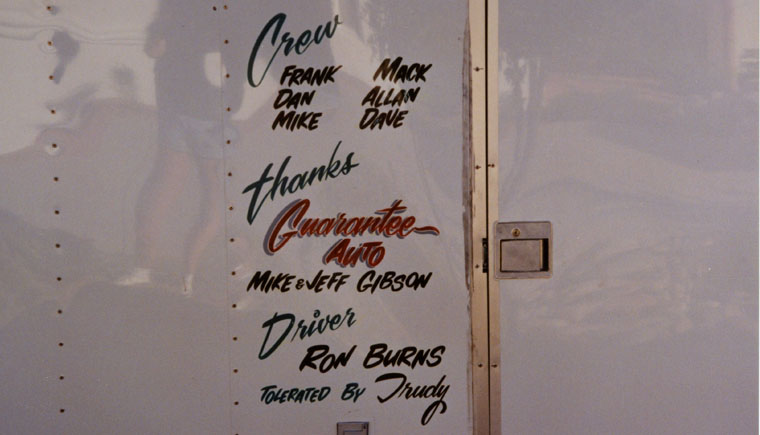 Crew
FRANK MACK
DAN ALLAN
MIKE DAVE
thanks
Guarantee
AUTO
MIKE & JEFF GIBSON
Driver
RON BURNS
TOLERATED BY Trudy